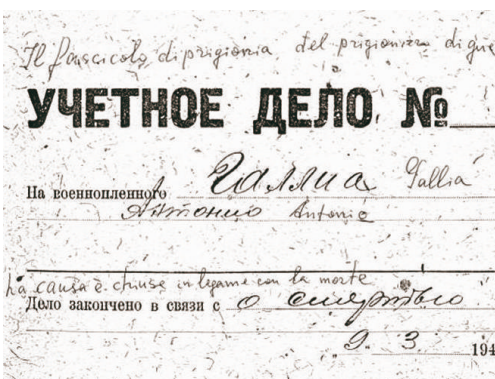 Il fascicolo di prigionia del prigioniero di gue
УЧЕТНОЕ ДЕЛО №
На военнопленного Галлиа Gallia
Антонио Antonio
La causa è chiusa in legame con la morte
Дело закончено в связи с о смертью
9. 3 194